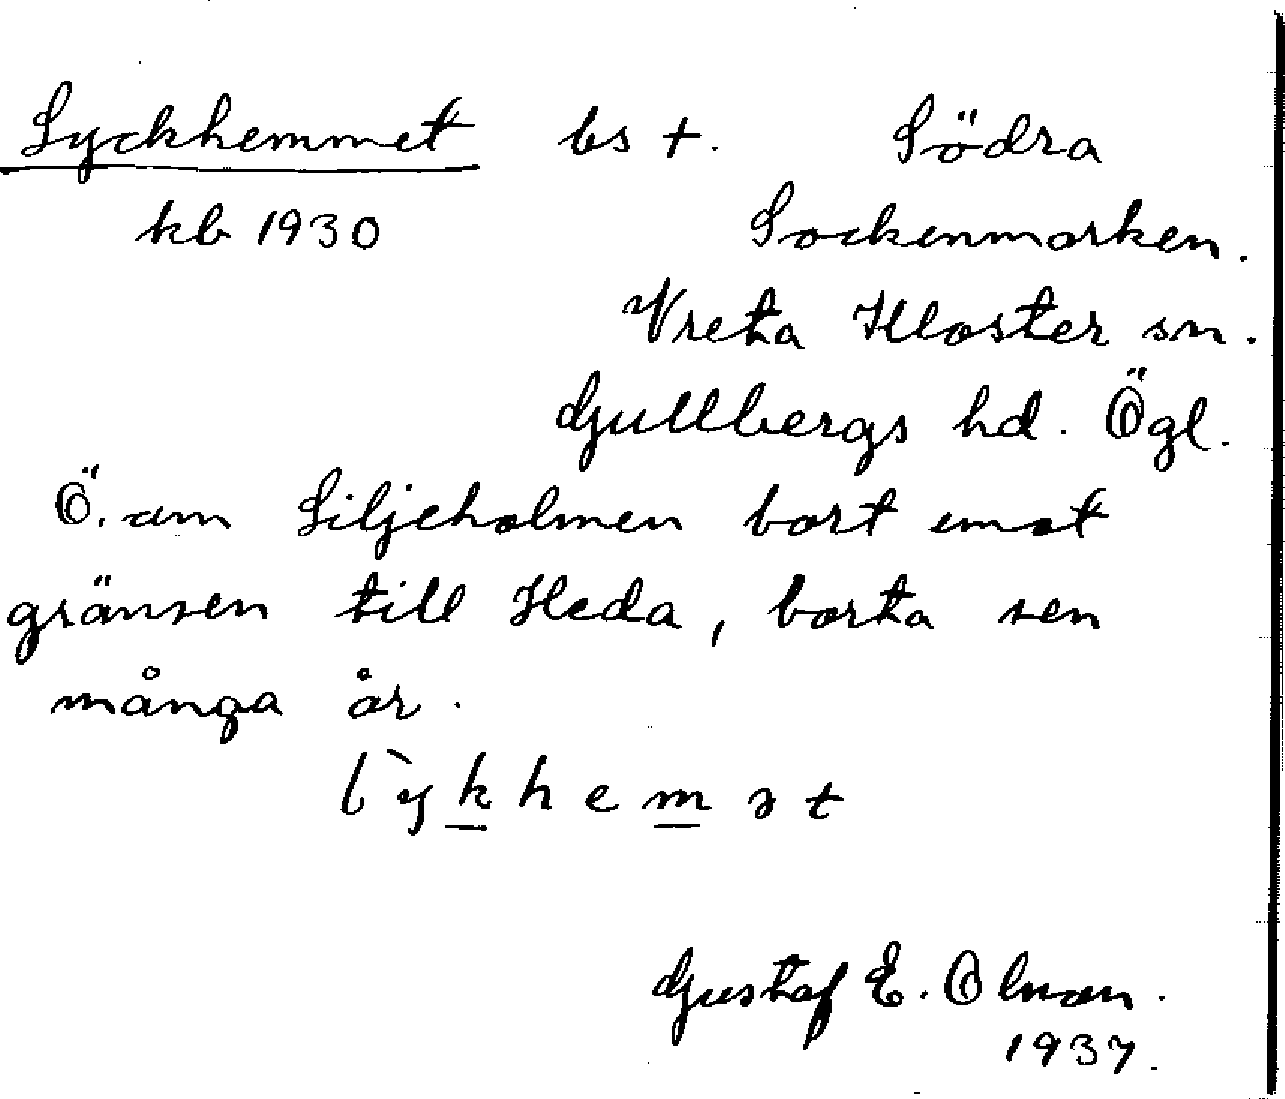 Lyckhemmet bs +. Södra
kb 1930 Sockenmarken.
Vreta Kloster sn.
Gullbergs hd. Ögl.
Ö. om Liljeholmen bort emot
gränsen till Heda, borta sen
många år.
lỳkhemət
Gustaf E. Olson.
1937.